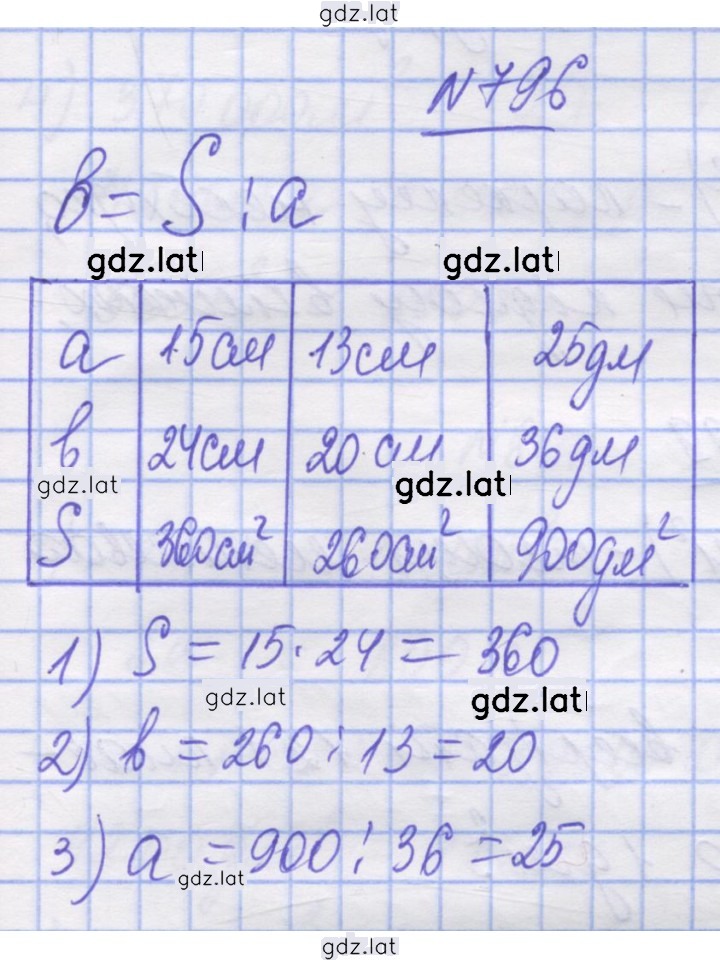 gdz.lat
N 796
b = S : a
gdz.lat gdz.lat
a 15см 13см 25дм
b 24см 20 см 36дм
gdz.lat gdz.lat
S 360см² 260см² 900дм²
1) S = 15 · 24 = 360
gdz.lat gdz.lat
2) b = 260 : 13 = 20
3) a = 900 : 36 = 25
gdz.lat
gdz.lat